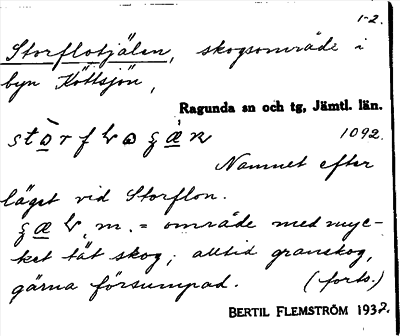 1-2.
Storflotjälen, skogsområde i
byn Köttsjön,
Ragunda sn och tg, Jämtl. län.
1092.
Namnet efter
läget vid Storflon.
m. = område med myc-
ket tät skog; alltid granskog,
gärna försumpad. (forts.)
BERTIL FLEMSTRÖM 1932.